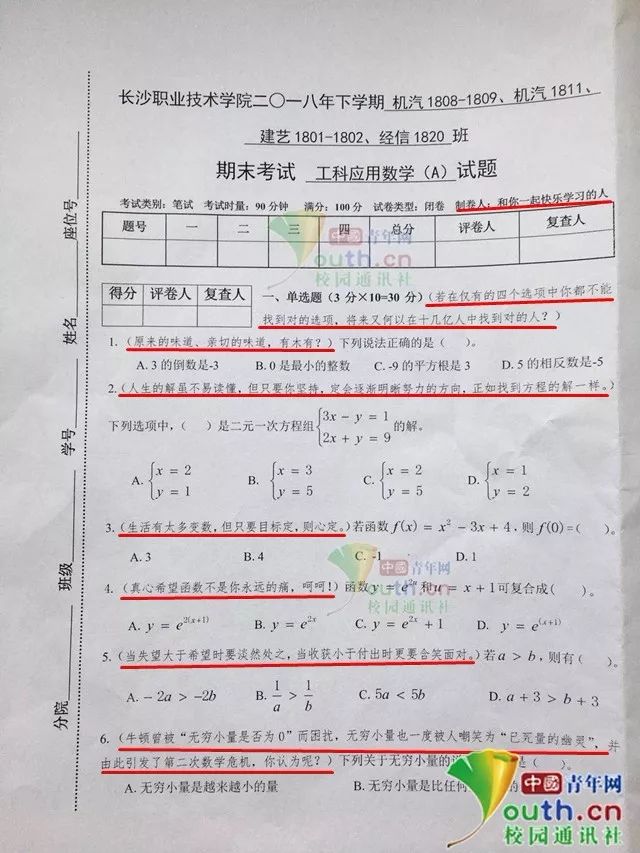 长沙职业技术学院二〇一八年下学期 机汽1808-1809、机汽1811、
建艺1801-1802、经信1820 班
期末考试 工科应用数学（A）试题
考试类别：笔试 考试时量：90分钟 满分：100分 试卷类型：闭卷 制卷人：和你一起快乐学习的人
题号 一 二 三 四 总分 评卷人 复查人
中國青年网
youth.cn
校园通讯社
得分 评卷人 复查人
一、单选题（3分×10=30分）（若在仅有的四个选项中你都不能
找到对的选项，将来又何以在十几亿人中找到对的人？）
1.（原来的味道、亲切的味道，有木有？）下列说法正确的是（ ）。
A. 3的倒数是-3 B. 0是最小的整数 C. -9的平方根是3 D. 5的相反数是-5
2.（人生的解虽不易读懂，但只要你坚持，定会逐渐明晰努力的方向，正如找到方程的解一样。）
下列选项中，（ ）是二元一次方程组{3x − y = 1 2x + y = 9 的解。
A. {x = 2 y = 1 B. {x = 3 y = 5 C. {x = 2 y = 5 D. {x = 1 y = 2
3.（生活有太多变数，但只要目标定，则心定。）若函数 f(x) = x² − 3x + 4，则 f(0)=（ ）。
A. 3 B. 4 C. -1 D. 1
中國青年网
youth.cn
校园通讯社
4.（真心希望函数不是你永远的痛，呵呵！）函数 y = e^{2u} 和 u = x + 1 可复合成（ ）。
A. y = e^{2(x+1)} B. y = e^{2x} C. y = e^{2x} + 1 D. y = e^{(x+1)}
5.（当失望大于希望时要淡然处之，当收获小于付出时更要含笑面对。）若 a > b，则有（ ）。
A. − 2a > −2b B. 1/a > 1/b C. 5a < 5b D. a + 3 > b + 3
6.（牛顿曾被“无穷小量是否为0”而困扰，无穷小量也一度被人嘲笑为“已死量的幽灵”，并
由此引发了第二次数学危机，你认为呢？）下列关于无穷小量的 是（ ）。
A. 无穷小量是越来越小的量 B. 无穷小量是比任何
中國青年网
youth.cn
校园通讯社
座位号
姓名
学号
班级
分院